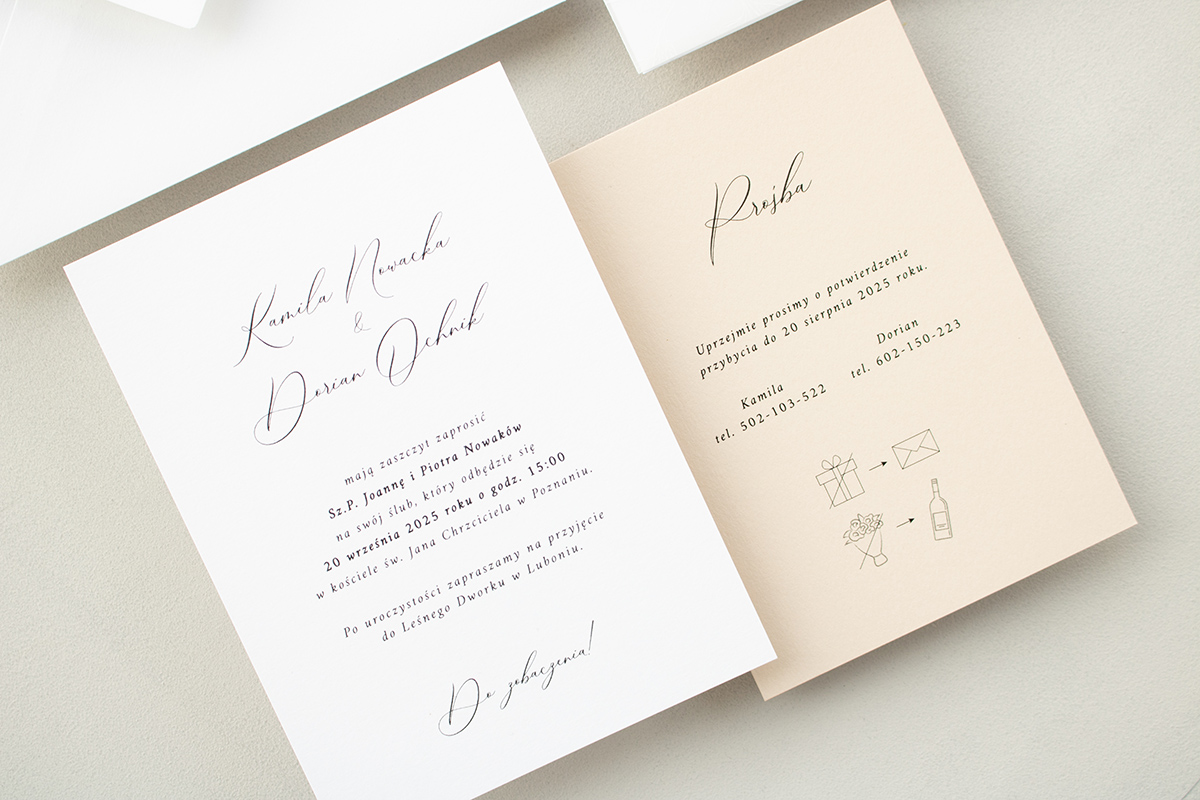 Kamila Nowacka
&
Dorian Ochnik
mają zaszczyt zaprosić
Sz.P. Joannę i Piotra Nowaków
na swój ślub, który odbędzie się
20 września 2025 roku o godz. 15:00
w kościele św. Jana Chrzciciela w Poznaniu.
Po uroczystości zapraszamy na przyjęcie
do Leśnego Dworku w Luboniu.
Do zobaczenia!
Prośba
Uprzejmie prosimy o potwierdzenie
przybycia do 20 sierpnia 2025 roku.
Kamila
tel. 502-103-522
Dorian
tel. 602-150-223